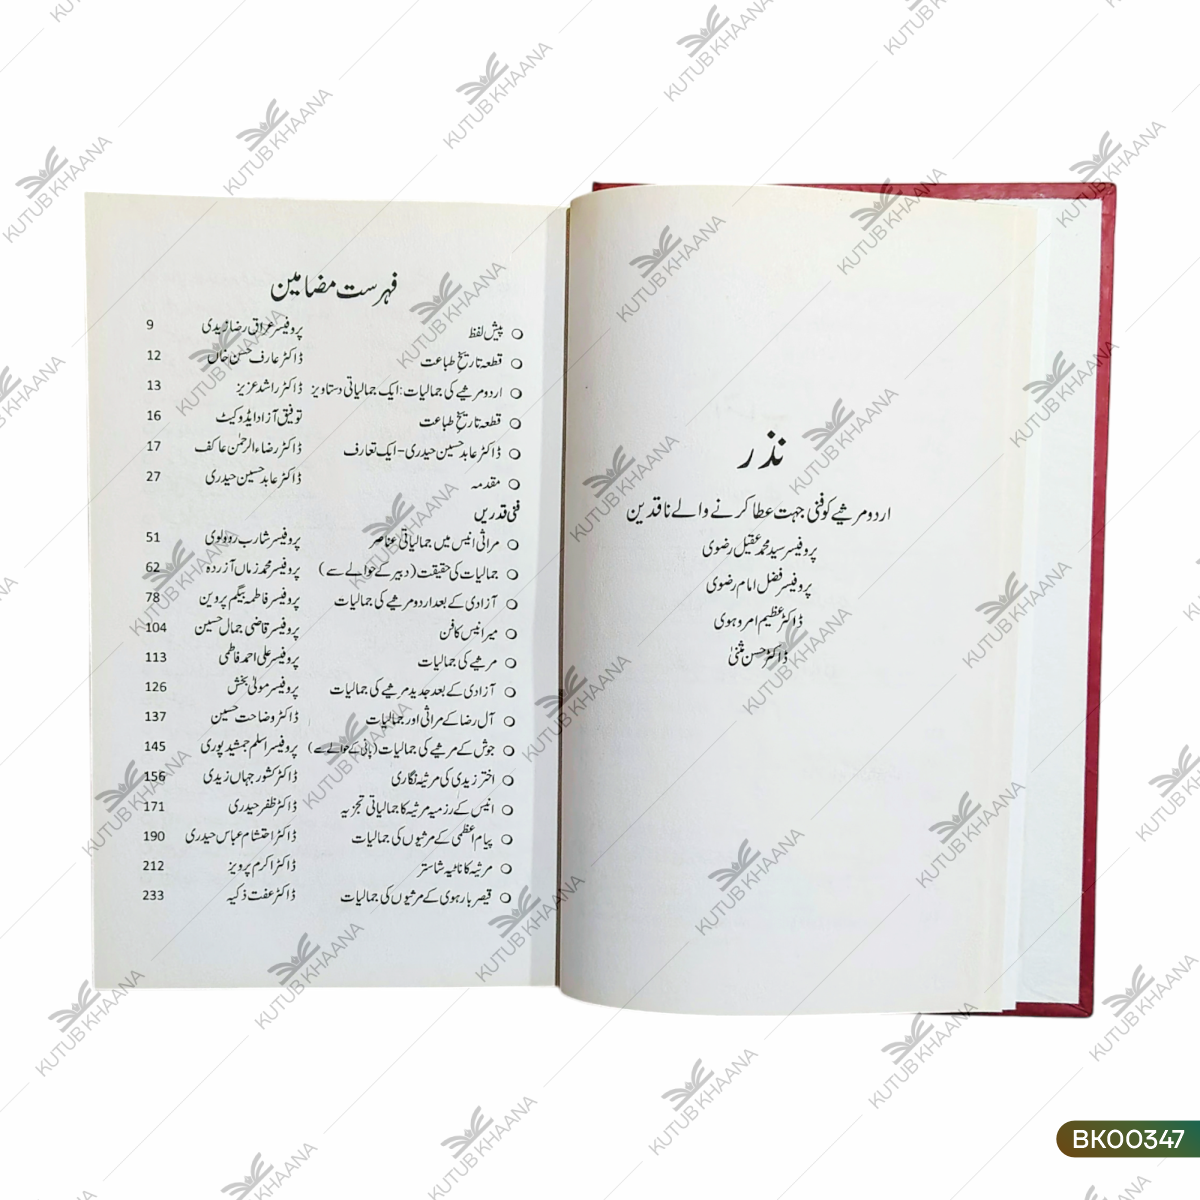 نذر
اردو مرثیے کو فنی جہت عطا کرنے والے ناقدین
پروفیسر سید محمد عقیل رضوی
پروفیسر فضل امام رضوی
ڈاکٹر عظیم امروہوی
ڈاکٹر حسن مثنیٰ
فہرست مضامین
پیش لفظ پروفیسر عراق رضا زیدی 9
قطعہ تاریخ طباعت ڈاکٹر عارف حسن خاں 12
اردو مرثیے کی جمالیات: ایک جمالیاتی دستاویز ڈاکٹر راشد عزیز 13
قطعہ تاریخ طباعت توفیق آزاد ایڈوکیٹ 16
ڈاکٹر عابد حسین حیدری - ایک تعارف ڈاکٹر رضاء الرحمٰن عاکف 17
مقدمہ ڈاکٹر عابد حسین حیدری 27
فنی قدریں
مراثی انیس میں جمالیاتی عناصر پروفیسر شارب ردولوی 51
جمالیات کی حقیقت (دبیر کے حوالے سے) پروفیسر محمد زماں آزردہ 62
آزادی کے بعد اردو مرثیے کی جمالیات پروفیسر فاطمہ بیگم پروین 78
میر انیس کا فن پروفیسر قاضی جمال حسین 104
مرثیے کی جمالیات پروفیسر علی احمد فاطمی 113
آزادی کے بعد جدید مرثیے کی جمالیات پروفیسر مولیٰ بخش 126
آل رضا کے مراثی اور جمالیات ڈاکٹر وضاحت حسین 137
جوش کے مرثیے کی جمالیات (پانی کے حوالے سے) پروفیسر اسلم جمشید پوری 145
اختر زیدی کی مرثیہ نگاری ڈاکٹر کشور جہاں زیدی 156
انیس کے رزمیہ مرثیہ کا جمالیاتی تجزیہ ڈاکٹر ظفر حیدری 171
پیام اعظمی کے مرثیوں کی جمالیات ڈاکٹر احتشام عباس حیدری 190
مرثیہ کا ناٹیہ شاستر ڈاکٹر اکرم پرویز 212
قیصر بارہوی کے مرثیوں کی جمالیات ڈاکٹر عفت ذکیہ 233
KUTUB KHAANA
BK00347